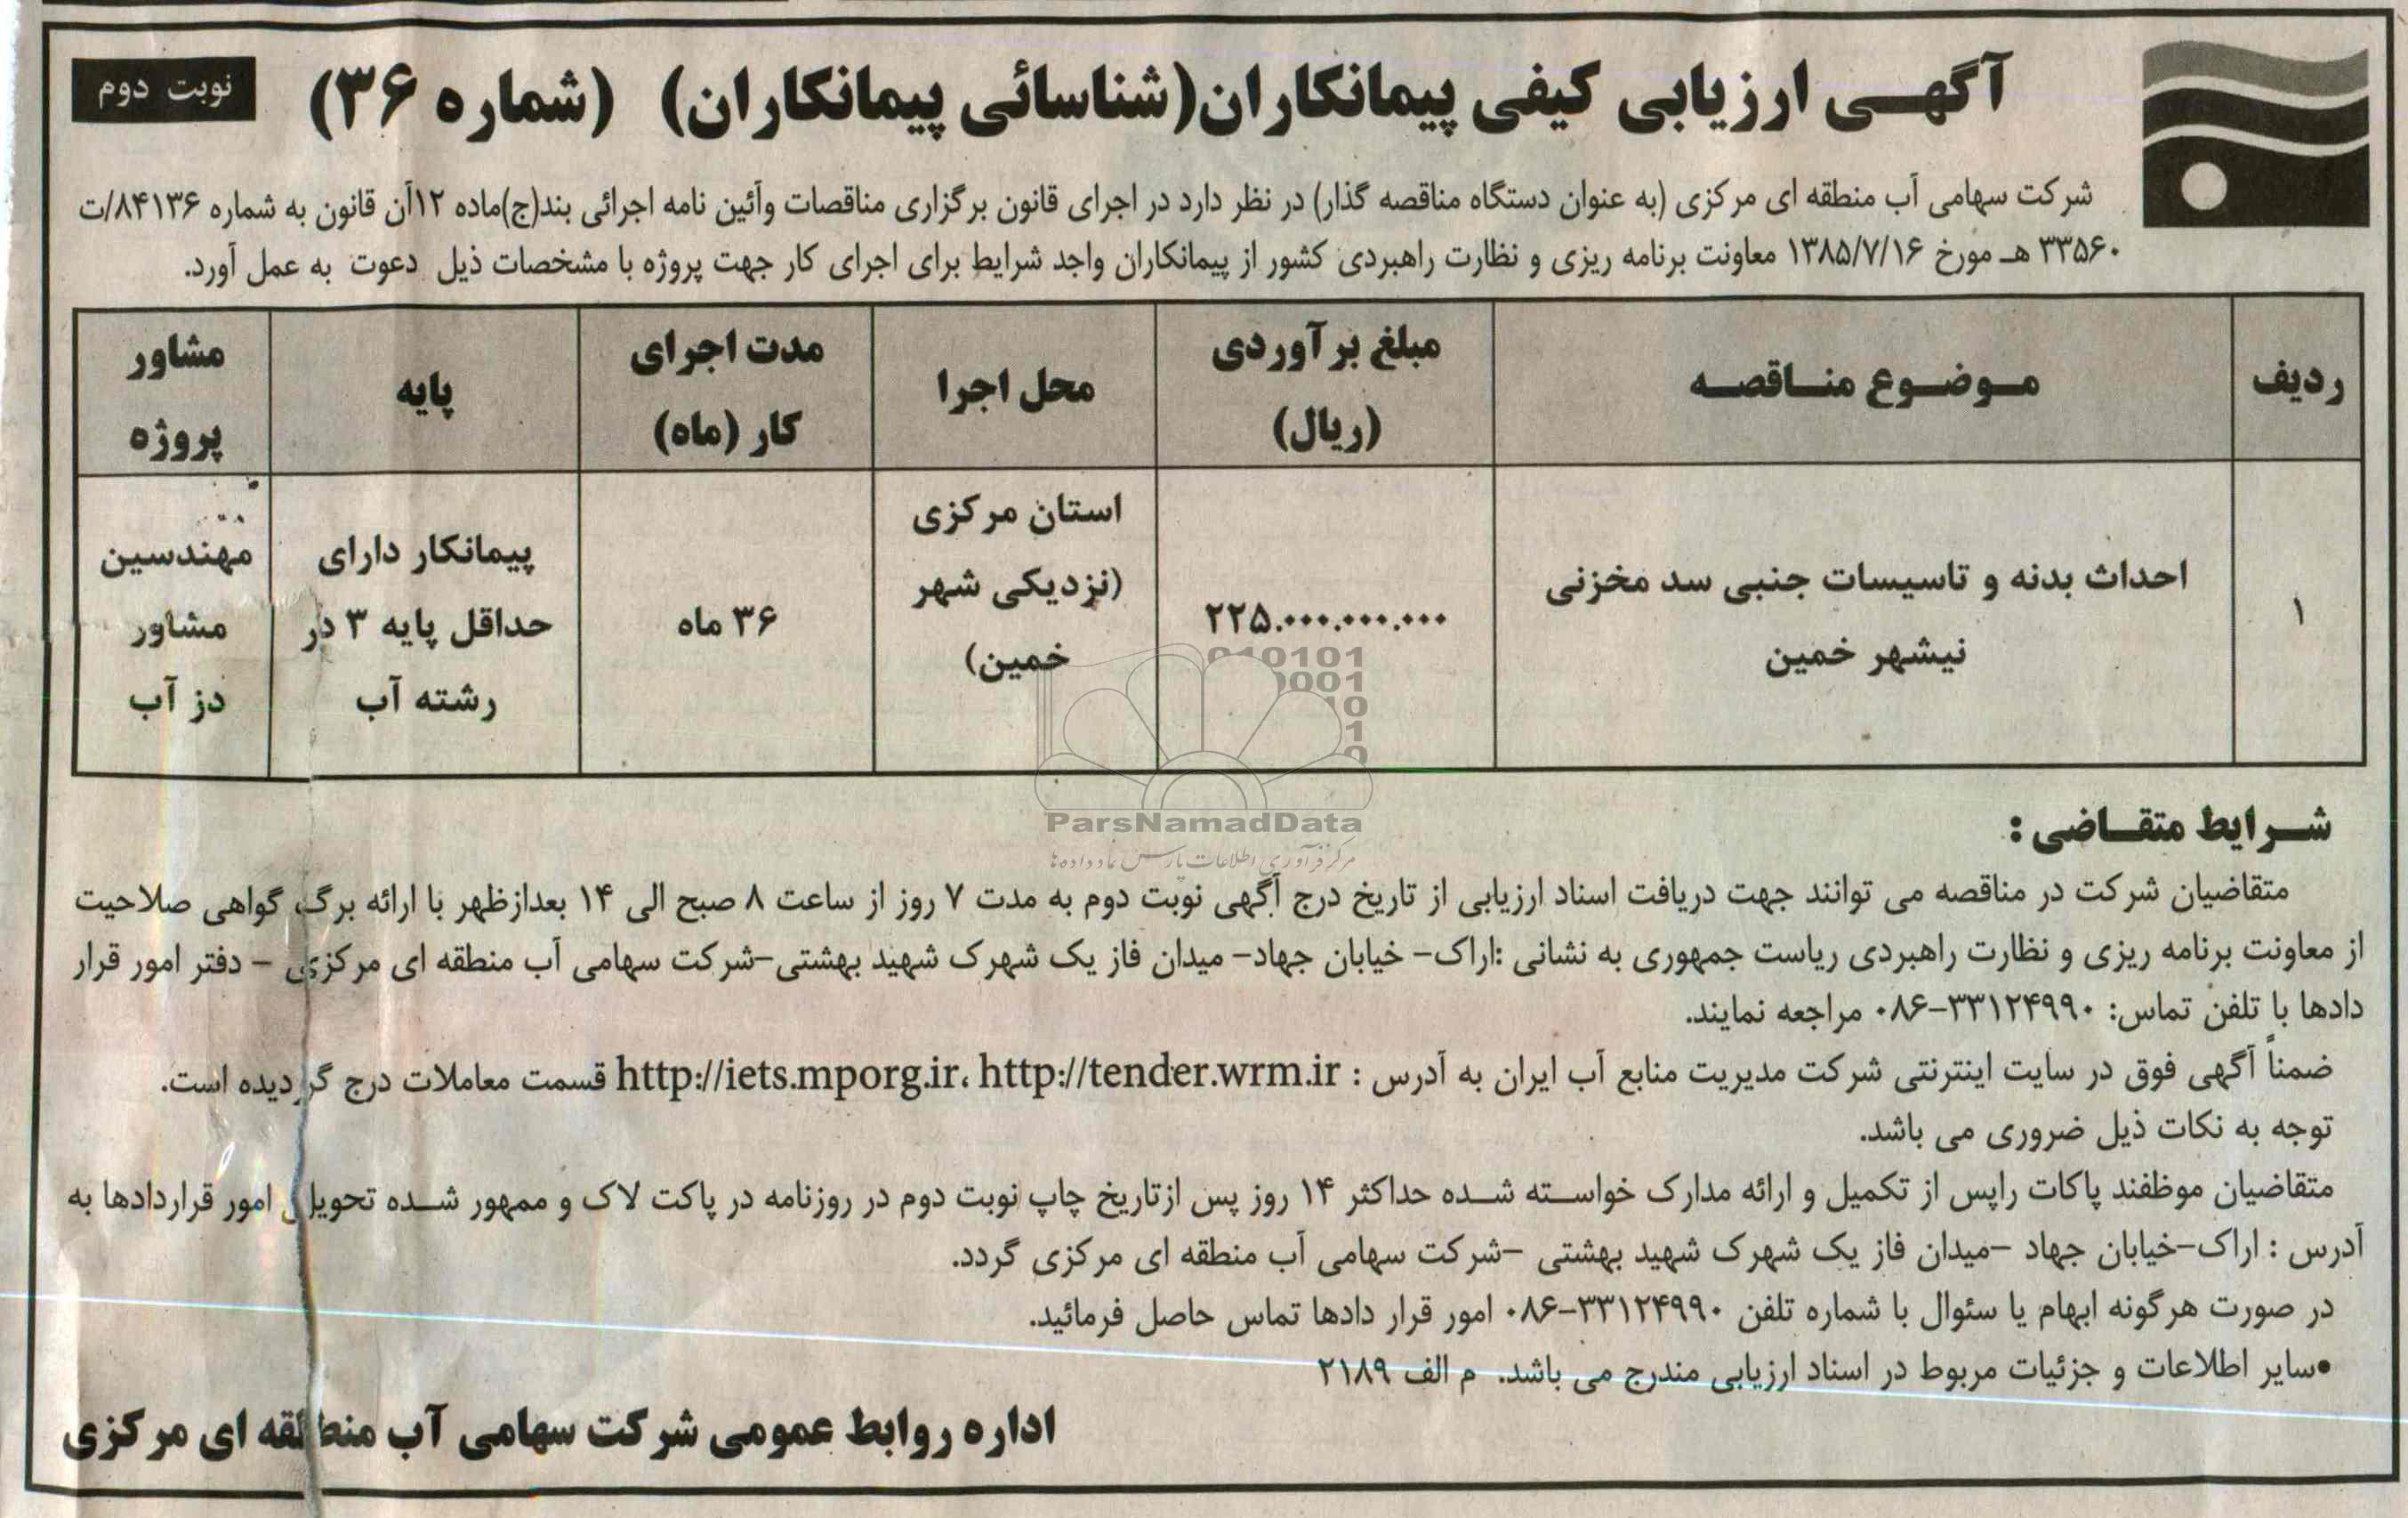 آگهی ارزیابی کیفی پیمانکاران(شناسائی پیمانکاران) (شماره ۳۶)
نوبت دوم
شرکت سهامی آب منطقه ای مرکزی (به عنوان دستگاه مناقصه گذار) در نظر دارد در اجرای قانون برگزاری مناقصات وآئین نامه اجرائی بند(ج)ماده ۱۲آن قانون به شماره ۸۴۱۳۶/ت
۳۳۵۶۰ هـ مورخ ۱۳۸۵/۷/۱۶ معاونت برنامه ریزی و نظارت راهبردی کشور از پیمانکاران واجد شرایط برای اجرای کار جهت پروژه با مشخصات ذیل دعوت به عمل آورد.
ردیف
موضوع مناقصه
مبلغ برآوردی
(ریال)
محل اجرا
مدت اجرای
کار (ماه)
پایه
مشاور
پروژه
۱
احداث بدنه و تاسیسات جنبی سد مخزنی
نیشهر خمین
۲۲۵.۰۰۰.۰۰۰.۰۰۰
استان مرکزی
(نزدیکی شهر
خمین)
۳۶ ماه
پیمانکار دارای
حداقل پایه ۳ در
رشته آب
مهندسین
مشاور
دز آب
ParsNamadData
مرکز فرآوری اطلاعات پارس نماد داده‌ها
شرایط متقاضی :
متقاضیان شرکت در مناقصه می توانند جهت دریافت اسناد ارزیابی از تاریخ درج آگهی نوبت دوم به مدت ۷ روز از ساعت ۸ صبح الی ۱۴ بعدازظهر با ارائه برگ گواهی صلاحیت
از معاونت برنامه ریزی و نظارت راهبردی ریاست جمهوری به نشانی :اراک- خیابان جهاد- میدان فاز یک شهرک شهید بهشتی-شرکت سهامی آب منطقه ای مرکزی - دفتر امور قرار
دادها با تلفن تماس: ۳۳۱۲۴۹۹۰-۰۸۶ مراجعه نمایند.
ضمناً آگهی فوق در سایت اینترنتی شرکت مدیریت منابع آب ایران به آدرس : http://iets.mporg.ir، http://tender.wrm.ir قسمت معاملات درج گردیده است.
توجه به نکات ذیل ضروری می باشد.
متقاضیان موظفند پاکات راپس از تکمیل و ارائه مدارک خواسته شده حداکثر ۱۴ روز پس ازتاریخ چاپ نوبت دوم در روزنامه در پاکت لاک و ممهور شده تحویل امور قراردادها به
آدرس : اراک-خیابان جهاد -میدان فاز یک شهرک شهید بهشتی -شرکت سهامی آب منطقه ای مرکزی گردد.
در صورت هرگونه ابهام یا سئوال با شماره تلفن ۳۳۱۲۴۹۹۰-۰۸۶ امور قرار دادها تماس حاصل فرمائید.
•سایر اطلاعات و جزئیات مربوط در اسناد ارزیابی مندرج می باشد. م الف ۲۱۸۹
اداره روابط عمومی شرکت سهامی آب منطقه ای مرکزی